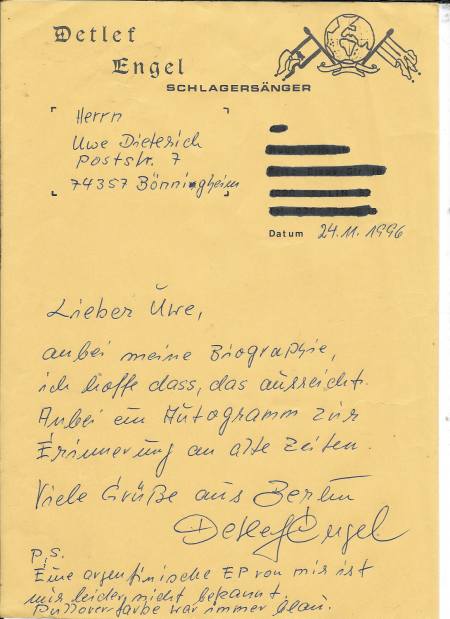 Detlef
Engel
SCHLAGERSÄNGER
Herrn
Uwe Dieterich
Poststr. 7
74357 Bönnigheim
Datum 24.11.1996
Lieber Uwe,
anbei meine Biographie,
ich hoffe dass, das ausreicht.
Anbei ein Autogramm zur
Erinnerung an alte Zeiten.
Viele Grüße aus Berlin
Detlef Engel
P.S.
Eine argentinische EP von mir ist
mir leider nicht bekannt.
Pulloverfarbe war immer blau.